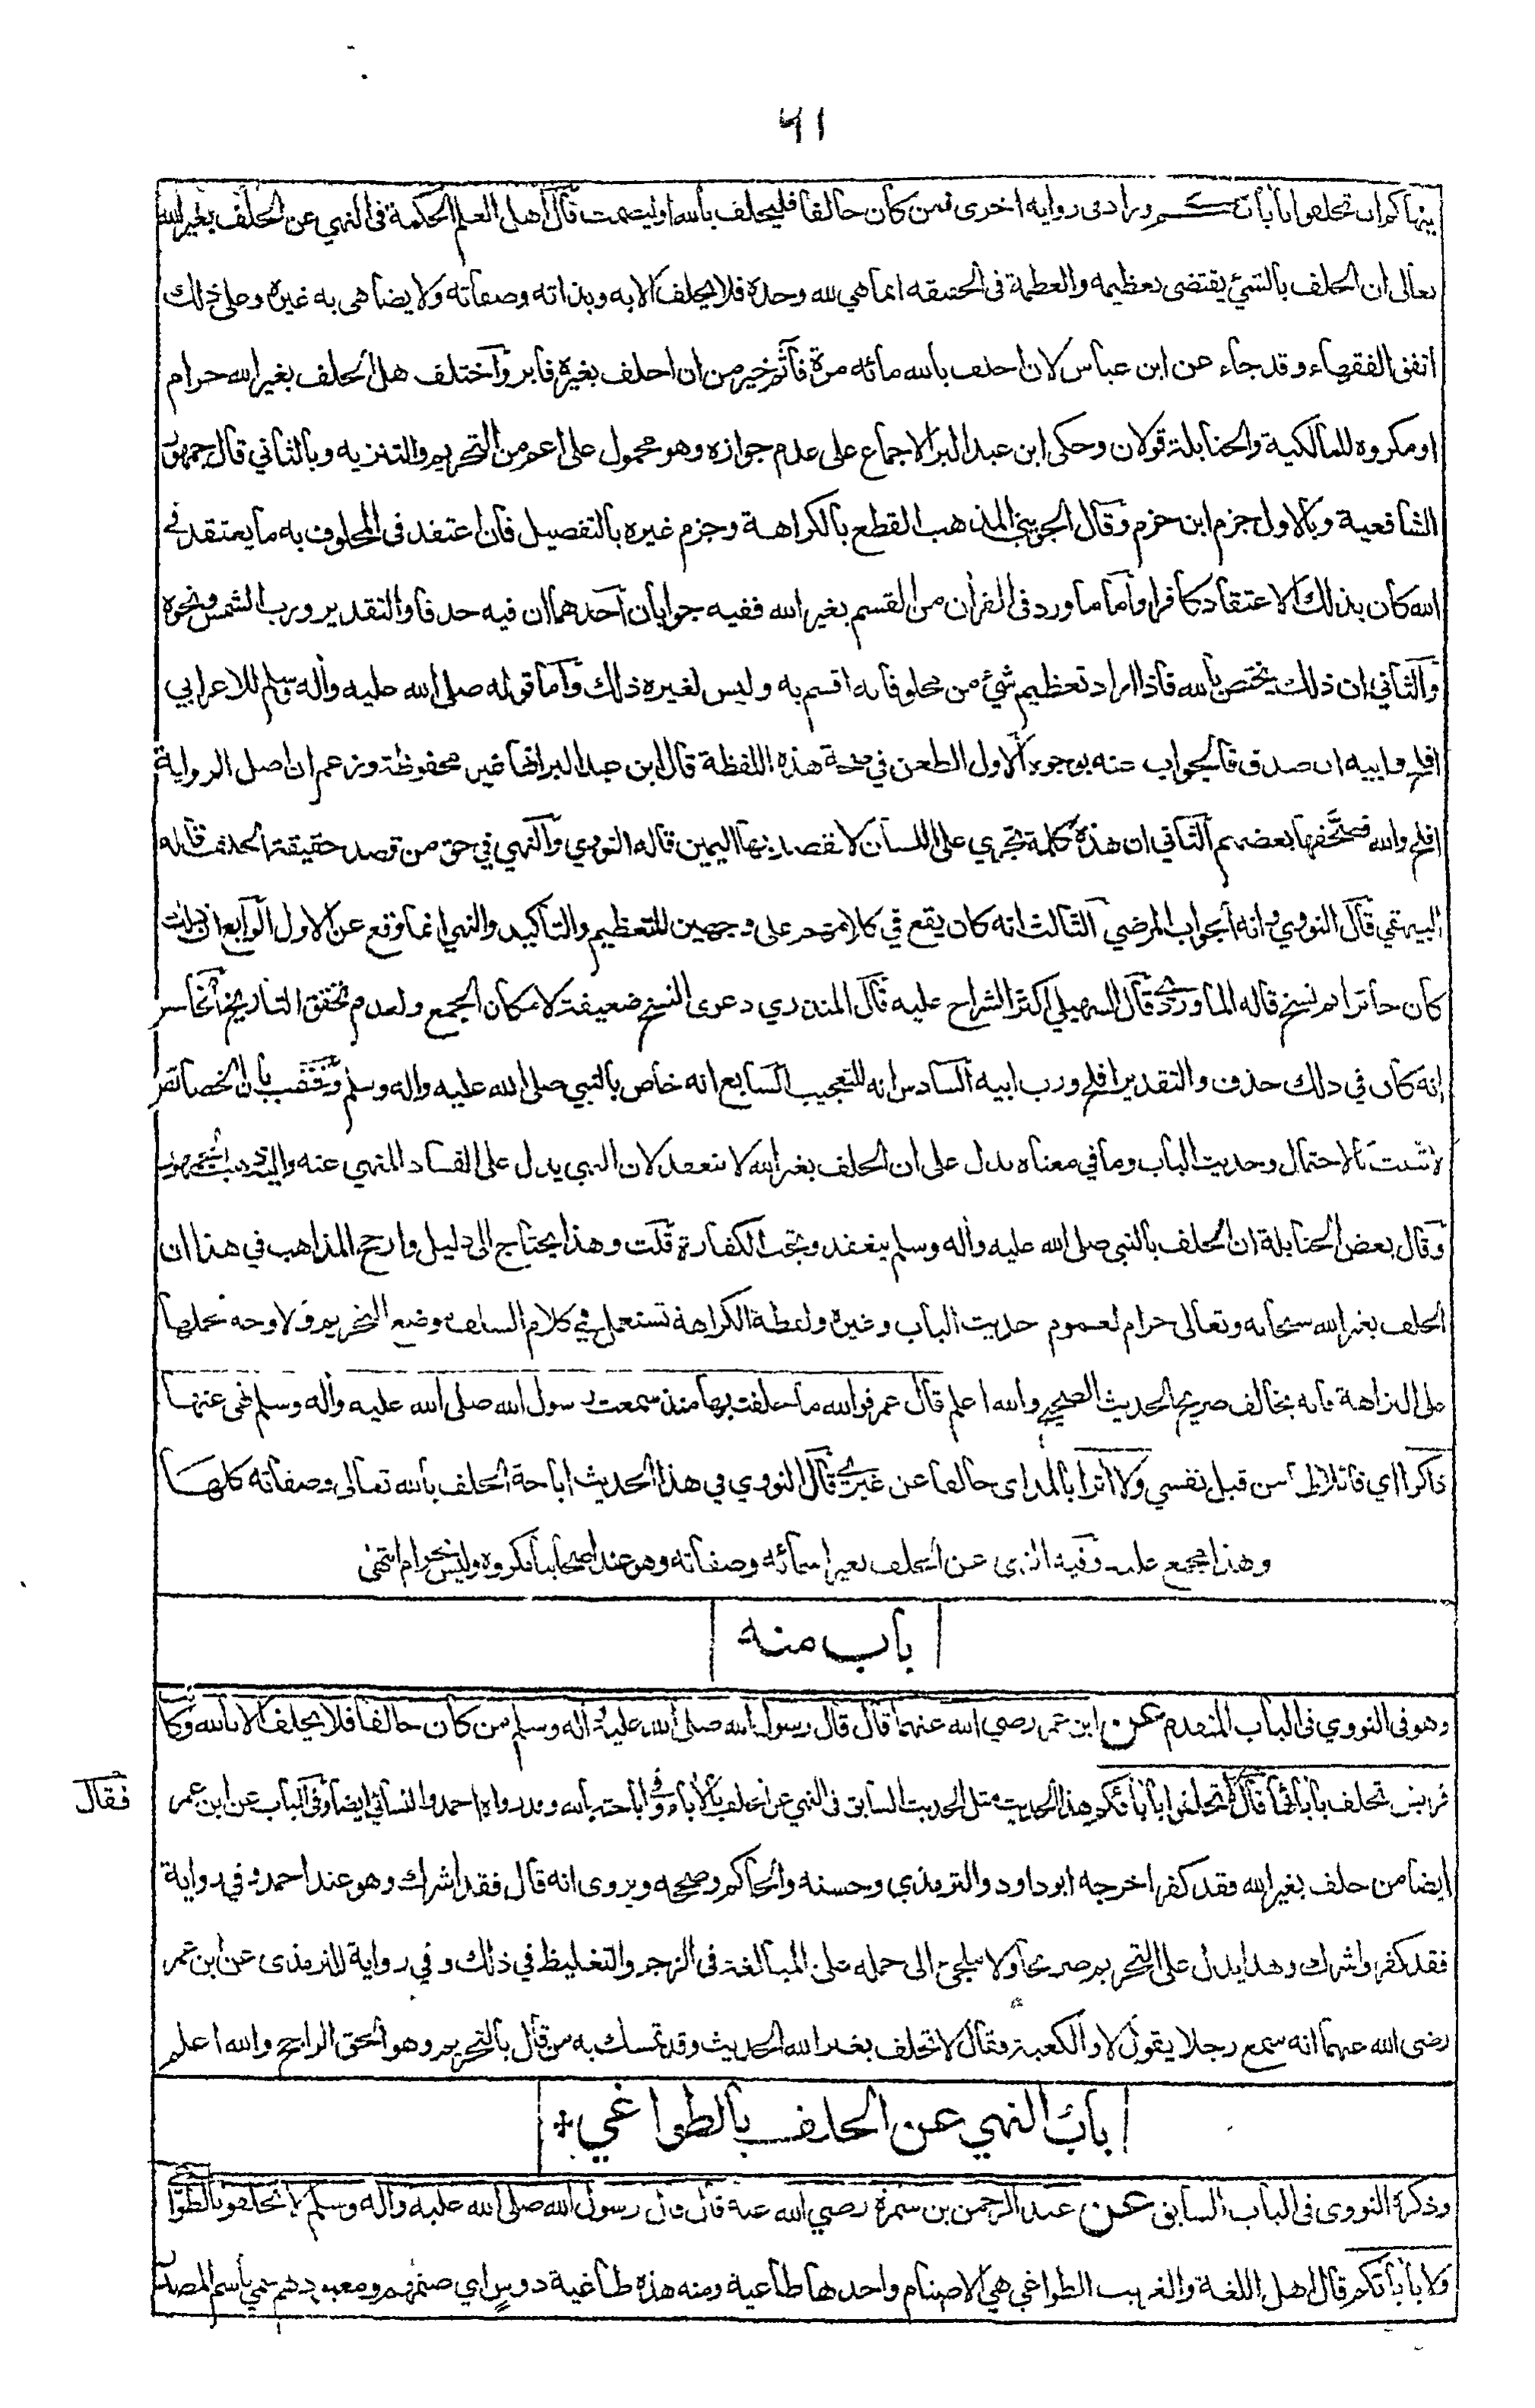 ٦١
ينهاكم ان تحلفوا بآبائكم وزاد في رواية اخرى فمن كان حالفا فليحلف بالله او ليصمت قال اهل العلم الحكمة في النهي عن الحلف بغير الله
تعالى ان الحلف بالشئ يقتضى تعظيمه والعظمة فى الحقيقه انما هي لله وحده فلا يحلف الا به وبذاته وصفاته ولا يضاهى به غيره وعلى ذلك
اتفق الفقهاء وقد جاء عن ابن عباس لان احلف بالله مائه مرة فآثم خير من ان احلف بغيره فابر واختلف هل الحلف بغير الله حرام
او مكروه للمالكية والحنابلة قولان وحكى ابن عبد البر الاجماع على عدم جوازه وهو محمول على اعم من التحريم والتنزيه وبالثاني قال جمهور
الشافعية وبالاول جزم ابن حزم وقال الجويني المذهب القطع بالكراهة وجزم غيره بالتفصيل فان اعتقد فى المحلوف به ما يعتقد في
الله كان بذلك الاعتقاد كافرا واما ما ورد فى القرأن من القسم بغير الله ففيه جوابان احدهما ان فيه حذفا والتقدير ورب الشمس ونحوه
والثاني ان ذلك يختص بالله فاذا اراد تعظيم شئ من مخلوقاته اقسم به وليس لغيره ذلك واما قوله صلى الله عليه وأله وسلم للاعرابي
افلح وابيه ان صدق فالجواب عنه بوجوه الاول الطعن في صحة هذه اللفظة قال ابن عبد البر انها غير محفوظة وزعم ان اصل الرواية
افلح والله فصحفها بعضهم الثاني ان هذه كلمة تجري على اللسان لا تقصد بها اليمين قاله النووي والنهي في حق من قصد حقيقة الحلف قاله
البيهقي قال النووي انه الجواب المرضي الثالث انه كان يقع في كلامهم على وجهين للتعظيم والتأكيد والنهي انما وقع عن الاول الرابع ان ذلك
كان جائزا ثم نسخ قاله الماوردي قال السهيلي اكثر الشراح عليه قال المنذري دعوى النسخ ضعيفة لامكان الجمع ولعدم تحقق التاريخ الخامس
انه كان في ذلك حذف والتقدير افلح ورب ابيه السادس انه للتعجيب السابع انه خاص بالنبي صلى الله عليه واله وسلم وتعقب بأن الخصائص
لا تثبت بالاحتمال وحديث الباب وما في معناه يدل على ان الحلف بغير الله لا ينعقد لان النهي يدل على الفساد المنهي عنه واليه ذهب الجمهور
وقال بعض الحنابلة ان الحلف بالنبي صلى الله عليه وأله وسلم ينعقد وتجب الكفارة قلت وهذا يحتاج الى دليل وارجح المذاهب في هذا ان
الحلف بغير الله سبحانه وتعالى حرام لعموم حديث الباب وغيره ولفظة الكراهة تستعمل في كلام السلف موضع التحريم ولا وجه لحملها
على النزاهة فانه يخالف صريح الحديث الصحيح والله اعلم قال عمر فوالله ما حلفت بها منذ سمعت رسول الله صلى الله عليه وأله وسلم نهى عنها
ذاكرا اي قائلا لها من قبل نفسي ولا آثرا بالمد اى حالفا عن غيري قال النووي في هذا الحديث اباحة الحلف بالله تعالى وصفاته كلها
وهذا مجمع عليه وفيه النهى عن الحلف بغير اسمائه وصفاته وهو عند اصحابنا مكروه وليس بحرام انتهى
باب منه
وهو فى النووي فى الباب المتقدم عن ابن عمر رضي الله عنهما قال قال رسول الله صلى الله عليه وأله وسلم من كان حالفا فلا يحلف الا بالله وكانت
قريش تحلف بآبائها فقال لا تحلفوا بآبائكم هذا الحديث مثل الحديث السابق فى النهي عن الحلف بالآباء وفى اباحته بالله وقد رواه احمد والنسائي ايضا وفى الباب عن ابن عمر
فقال
ايضا من حلف بغير الله فقد كفر اخرجه ابو داود والترمذي وحسنه والحاكم وصححه ويروى انه قال فقد اشرك وهو عند احمد وفي رواية
فقد كفر واشرك وهذا يدل على التحريم صريحا ولا ملجئ الى حمله على المبالغة فى الزجر والتغليظ في ذلك وفي رواية للترمذى عن ابن عمر
رضى الله عنهما انه سمع رجلا يقول لا والكعبة فقال لا تحلف بغير الله الحديث وقد تمسك به من قال بالتحريم وهو الحق الراجح والله اعلم
باب النهي عن الحلف بالطواغي +
وذكره النووى فى الباب السابق عن عبد الرحمن بن سمرة رضي الله عنه قال قال رسول الله صلى الله عليه واله وسلم لا تحلفوا بالطواغي
ولا بآبائكم قال اهل اللغة والغريب الطواغي هي الاصنام واحدها طاغية ومنه هذه طاغية دوس اي صنمهم ومعبودهم سمي باسم المصدر